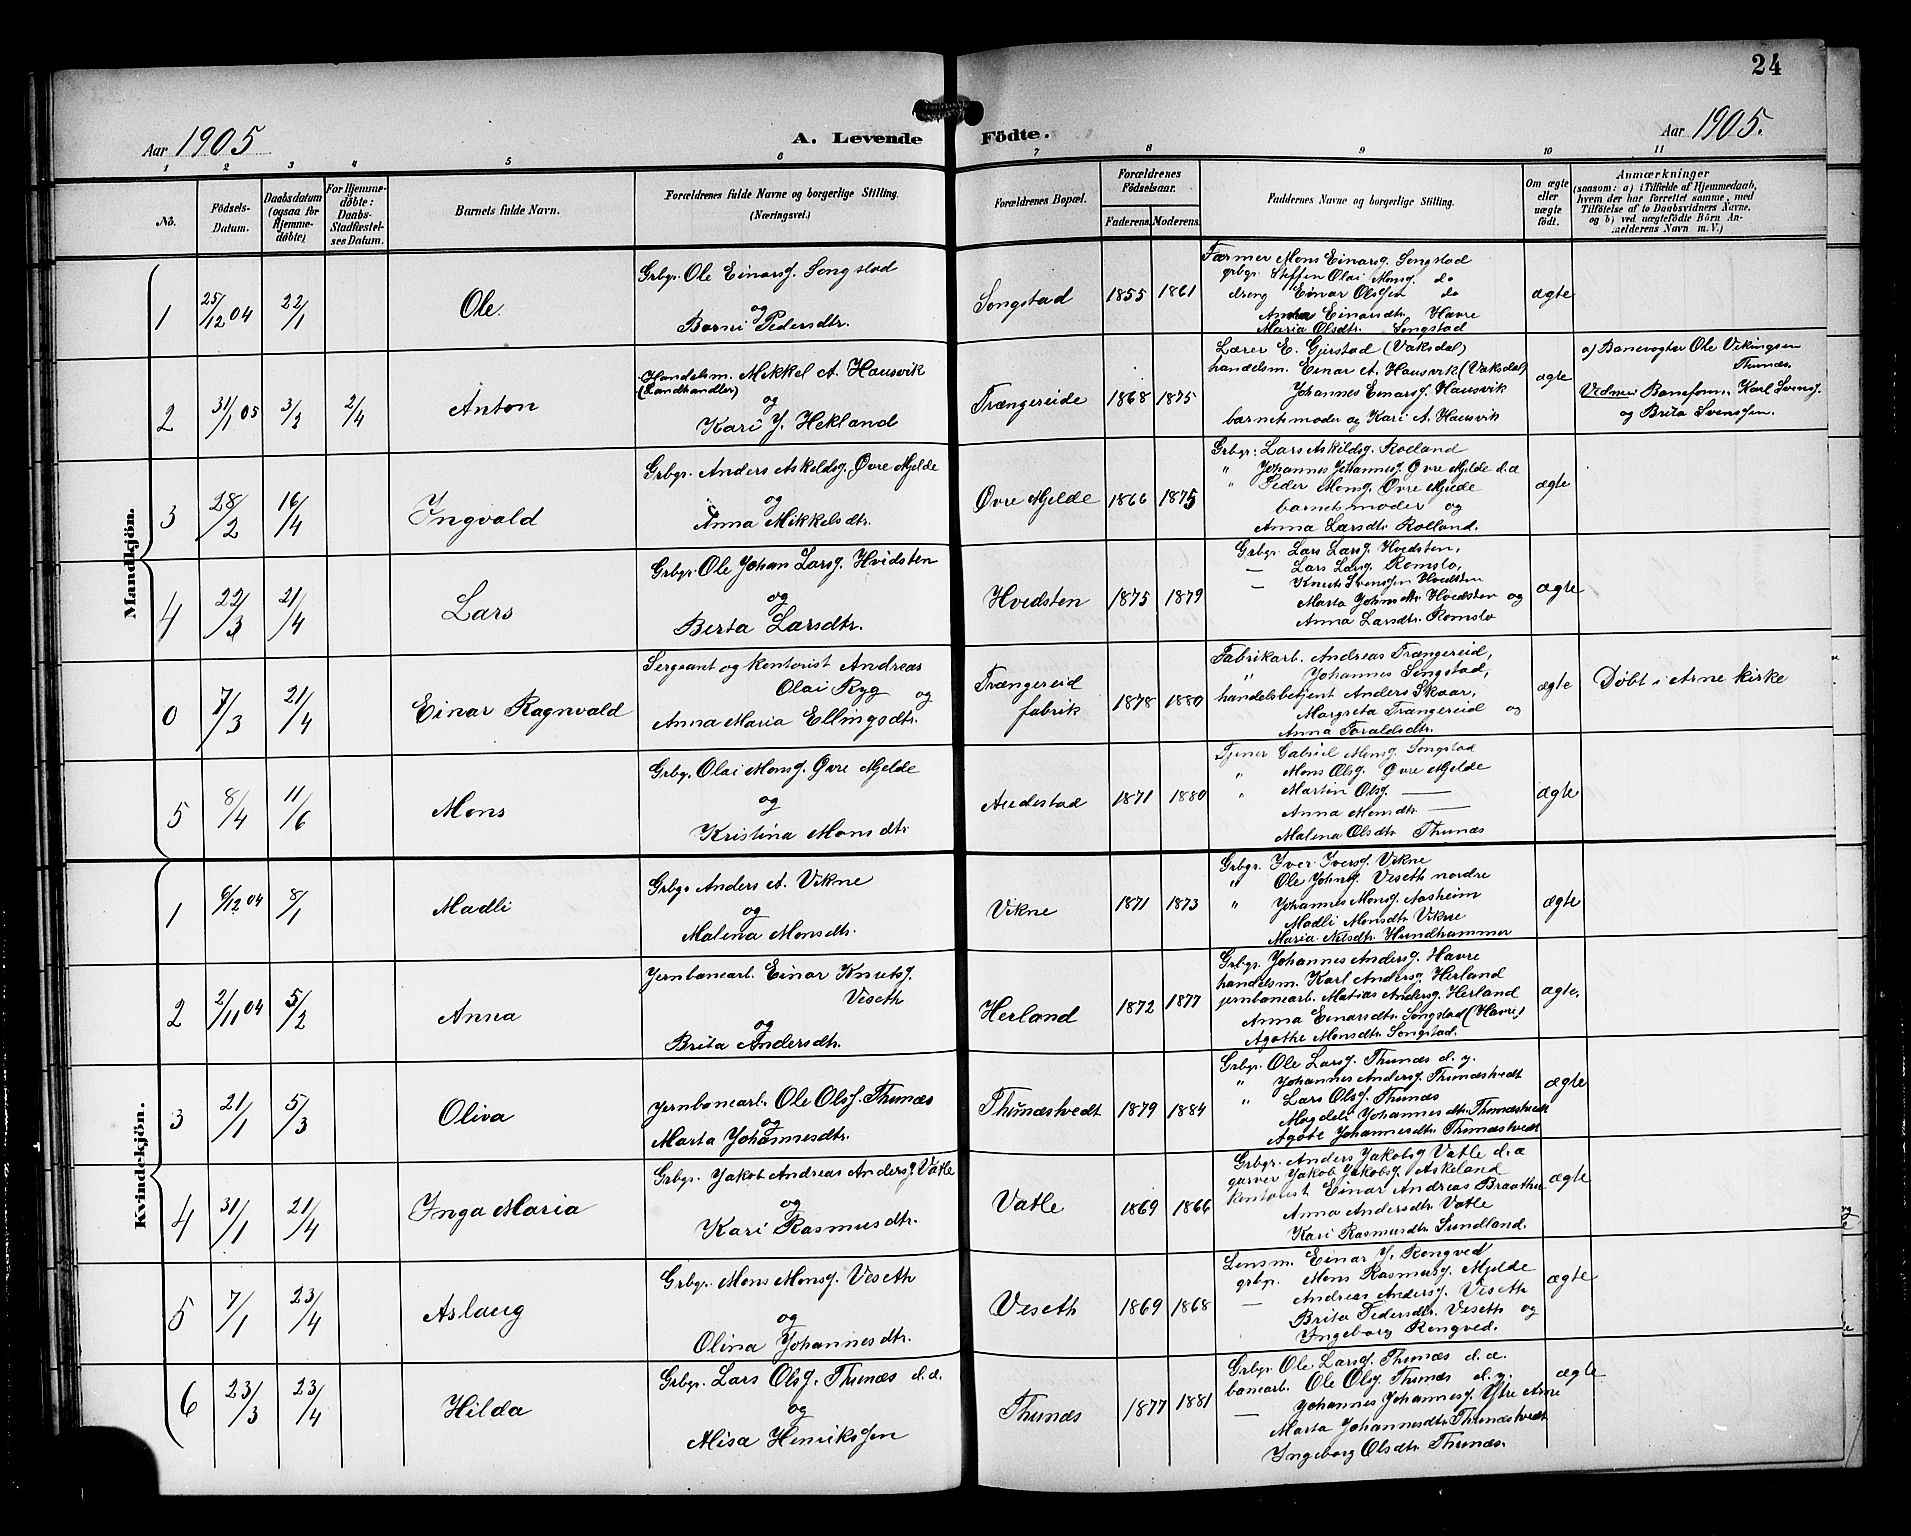 24
Aar 1905
A. Levende Födte.
Aar 1905.
1 2 3 4 5 6 7 8 9 10 11
No.
Födsels-Datum.
Daabsdatum (ogsaa for Hjemmedöbte)
For Hjemmedöbte: Daabs-Stadfæstelses Datum.
Barnets fulde Navn.
Forældrenes fulde Navne og borgerlige Stilling. (Næringsvei.)
Forældrenes Bopæl.
Forældrenes Födselsaar.
Faderens. Moderens.
Faddernes Navne og borgerlige Stilling.
Om ægte eller uægte födt.
Anmærkninger
(saasom: a) i Tilfælde af Hjemmedaab,
hvem der har forrettet samme, med
Tilföielse af to Daabsvidners Navne.
og b) ved uægtefödte Börn An-
melderens Navn m. V.)
Mandkjön.
1 25/12 04 22/1 Ole.
Grbgr. Ole Einarsg. Songstad
og
Barni Pedersdtr.
Songstad 1855 1861
Farmer Mons Einarsg. Songstad
grbgr. Steffen Olai Monsg. do
dreng Einar Olssen do
Anna Einarsdtr. Havre
Maria Olsdtr. Songstad
ægte
2 31/1 05 3/2 2/4 Anton
Handelsm. Mikkel A. Hausvik
(Landhandler)
og
Kari J. Hekland
Trængereide 1868 1875
Lærer E. Gjerstad (Vaksdal)
handelsm. Einar A. Hausvik (Vaksdal)
Johannes Einarsg. Hausvik
barnets moder og Kari A. Hausvik
ægte
a) Banevogter Ole Vikingsen
Thunæs.
Vidner: Baneform. Karl Svensg.
og Brita Svenssen.
3 28/2 16/4 Ingvald
Grbgr. Anders Askeldsg. Øvre Mjelde
og
Anna Mikkelsdtr.
Øvre Mjelde 1866 1875
Grbgr. Lars Askildsg. Rolland
" Johannes Johannesg. Øvre Mjelde d.æ
" Peder Monsg. Øvre Mjelde
barnets moder og
Anna Larsdtr. Rolland.
ægte
4 22/3 21/4 Lars
Grbgr. Ole Johan Larsg. Hvidsten
og
Berta Larsdtr.
Hvedsten 1875 1879
Grbgr. Lars Larsg. Hvedsten,
— Lars Larsg. Romslo,
— Knut Svenssen Hvedsten
Marta Johnsdtr. Hvedsten og
Anna Larsdtr. Romslo
ægte
0 7/3 21/4 Einar Ragnvald
Sergeant og kontorist Andreas
Olai Ryg og
Anna Maria Ellingsdtr.
Trængereid
fabrik
1878 1880
Fabrikarb. Andreas Trængereid,
" Johannes Songstad,
handelsbetjent Anders Skaar,
Margreta Trængereid og
Anna Toraldsdtr.
ægte Döbt i Arne kirke
5 8/4 11/6 Mons
Grbgr. Olai Monsg. Øvre Mjelde
og
Kristina Monsdtr.
Andestad 1871 1880
Tjener Gabriel Monsg. Songstad
" Mons Olsg. Øvre Mjelde
" Martin Olsg. —
Anna Monsdtr. —
Malena Olsdtr. Thunæs
ægte
Kvindekjön.
1 6/12 04 8/1 Madli
Grbgr. Anders A. Vikne
og
Malena Monsdtr.
Vikne 1871 1873
Grbgr. Iver Iversg. Vikne
" Ole Johnsg. Veseth nordre
" Johannes Monsg. Aasheim
Madli Monsdtr. Vikne
Maria Nilsdtr. Hundhammer
ægte
2 2/11 04 5/2 Anna
Jernbanearb. Einar Knutsg.
Veseth
og
Brita Andersdtr.
Herland 1872 1877
Grbgr. Johannes Andersg. Havre
handelsm. Karl Andersg. Herland
jernbanearb. Matias Andersg. Herland
Anna Einarsdtr. Songstad (Havre)
Agothe Monsdtr. Songstad.
ægte.
3 21/1 5/3 Oliva
Jernbanearb. Ole Olsg. Thunæs
og
Marta Johannesdtr.
Thunæstvedt 1879 1884
Grbgr. Ole Larsg. Thunæs d. y.
" Johannes Andersg. Thunæstvedt
" Lars Olsg. Thunæs
Magdeli Johannesdtr. Thunæstvedt
Agote Johannesdtr. Thunæstvedt
ægte
4 31/1 21/4 Inga Maria
Grbgr. Jakob Andreas Andersg. Vatle
og
Kari Rasmusdtr.
Vatle 1869 1866
Grbgr. Anders Jakobsg Vatle d.æ
garver Jakob Jakobsg. Askeland
kontorist Einar Andreas Braathen
Anna Andersdtr. Vatle
Kari Rasmusdtr. Sundland.
ægte
5 7/1 23/4 Aslaug
Grbgr. Mons Monsg. Veseth
og
Olina Johannesdtr.
Veseth 1869 1868
Lensm. Einar J. Rongved
grbgr. Mons Rasmusg. Mjelde
— Andreas Andersg. Veseth
Brita Pedersdtr. Veseth og
Ingeborg Rongved.
ægte
6 23/3 23/4 Hilda
Grbgr. Lars Olsg. Thunæs d.æ.
og
Misa Henrikssen
Thunæs 1877 1881
Grbgr. Ole Larsg. Thunæs d.æ.
banearb. Ole Olsg. Thunæs d.y.
— Johannes Johannesg. Ytre Arne
Marta Johannesdtr. Thunæstvedt
Ingeborg Olsdtr. Thunæs.
ægte